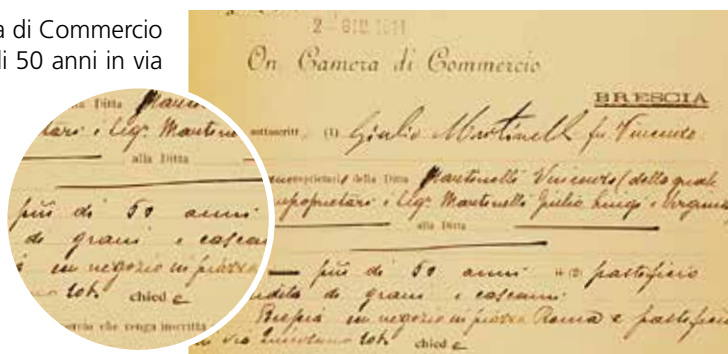 a di Commercio
di 50 anni in via
2 - GIU 1911
On. Camera di Commercio
BRESCIA
sottoscritt (1) Giulio Martinelli fu Vincenzo
comproprietari della Ditta Martinelli Vincenzo (della quale
comproprietari i Sigg. Martinelli Giulio Luigi e Virginia
alla Ditta
più di 50 anni un pastificio
vendita di grani e cascami
Brescia un negozio in piazza Roma e pastificio
in via chied e
la Ditta
tari i Sigg. Martinel
alla Ditta
più di 50 anni
di grani e cascam
un negozio in piazza
chied e
che venga inscritta